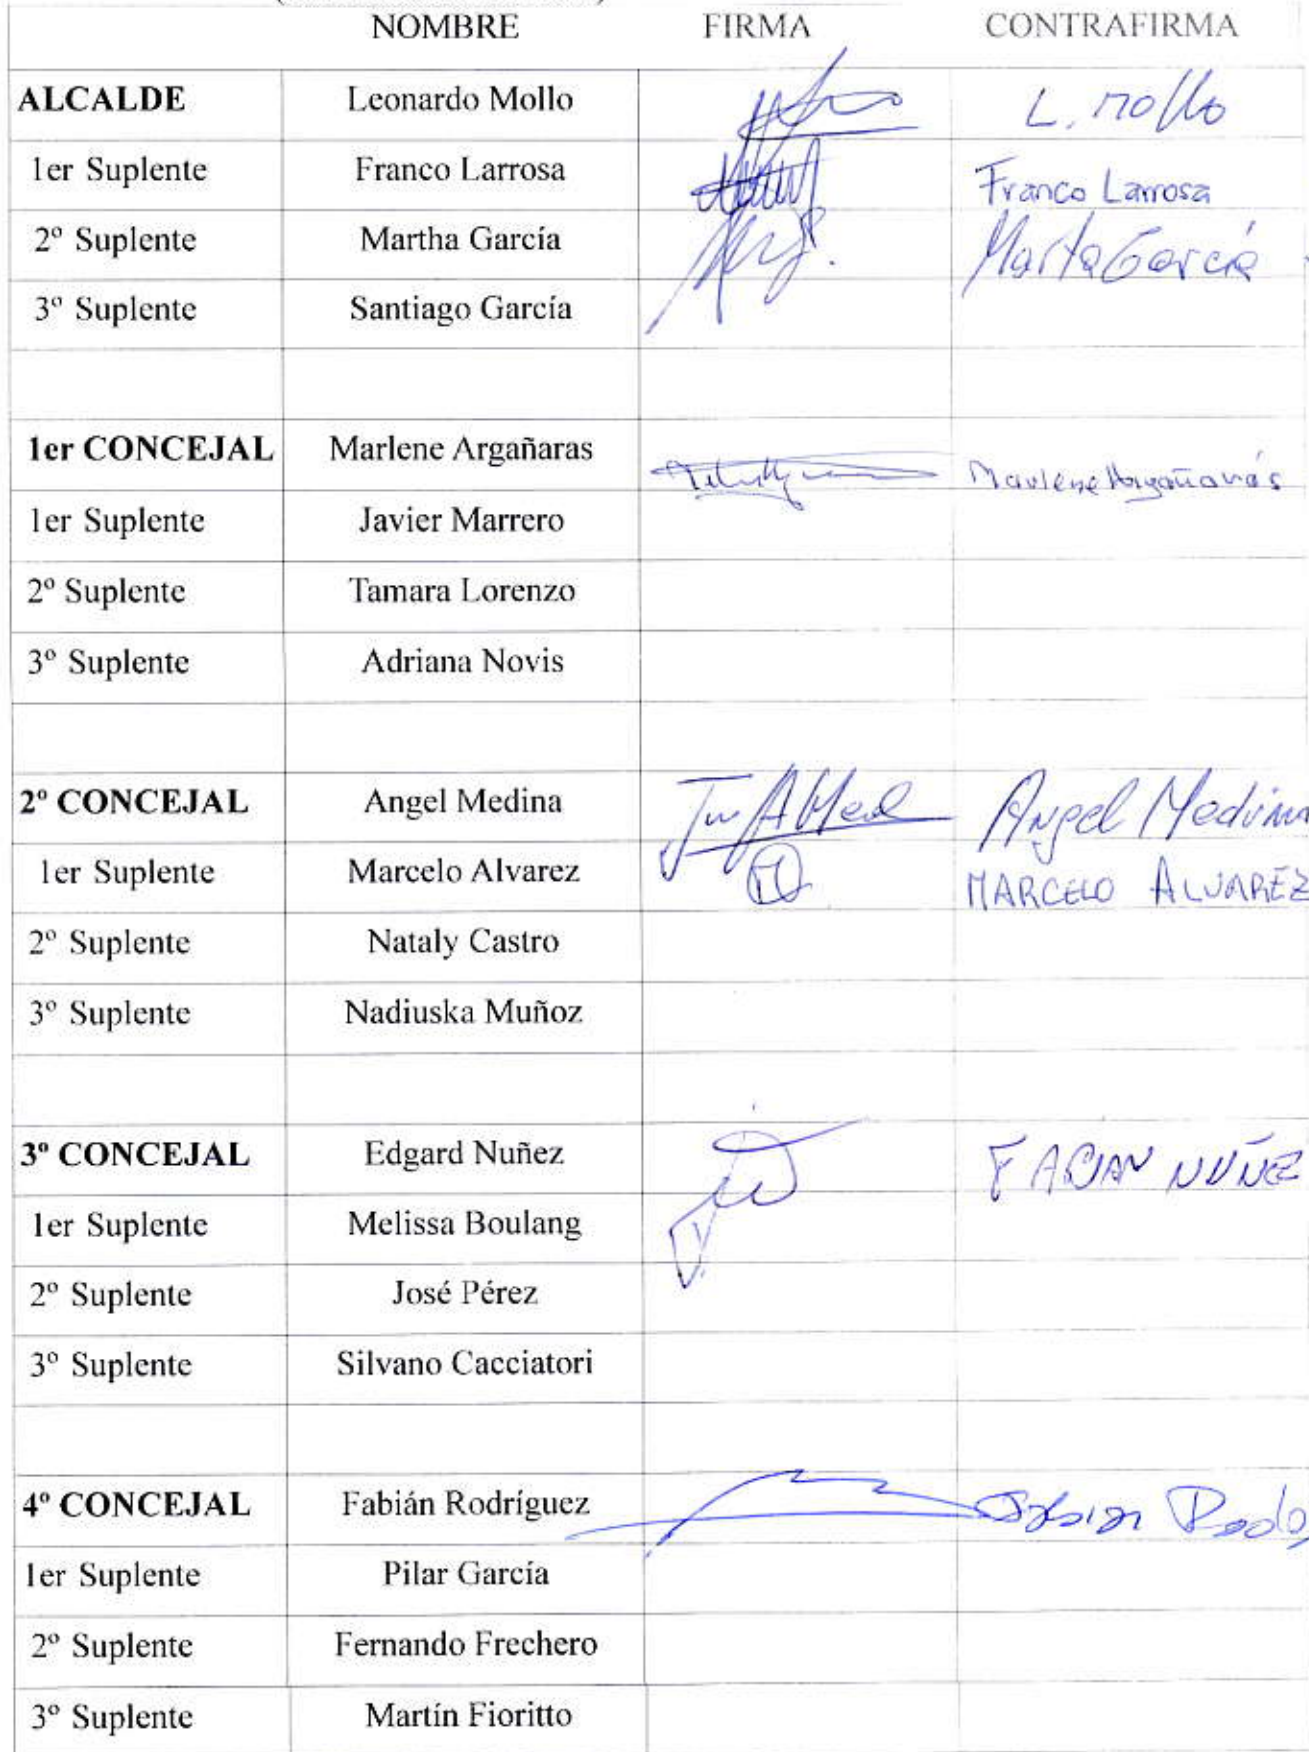 NOMBRE FIRMA CONTRAFIRMA
ALCALDE Leonardo Mollo L. Mollo
1er Suplente Franco Larrosa Franco Larrosa
2º Suplente Martha García Marta García
3º Suplente Santiago García
1er CONCEJAL Marlene Argañaras Marlene Argañarás
1er Suplente Javier Marrero
2º Suplente Tamara Lorenzo
3º Suplente Adriana Novis
2º CONCEJAL Angel Medina Angel Medina
1er Suplente Marcelo Alvarez MARCELO ALVAREZ
2º Suplente Nataly Castro
3º Suplente Nadiuska Muñoz
3º CONCEJAL Edgard Nuñez FABIAN NUÑEZ
1er Suplente Melissa Boulang
2º Suplente José Pérez
3º Suplente Silvano Cacciatori
4º CONCEJAL Fabián Rodríguez
1er Suplente Pilar García
2º Suplente Fernando Frechero
3º Suplente Martín Fioritto